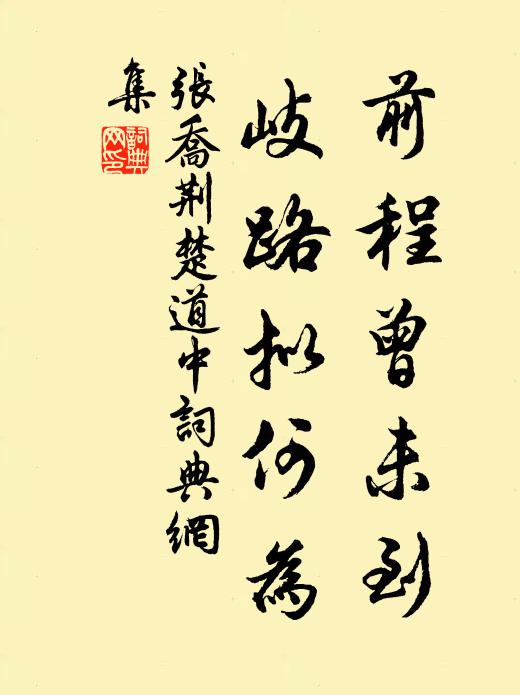 前程曾未到
岐路拟何為
張喬荆楚道中詞典網
集
詞典網印